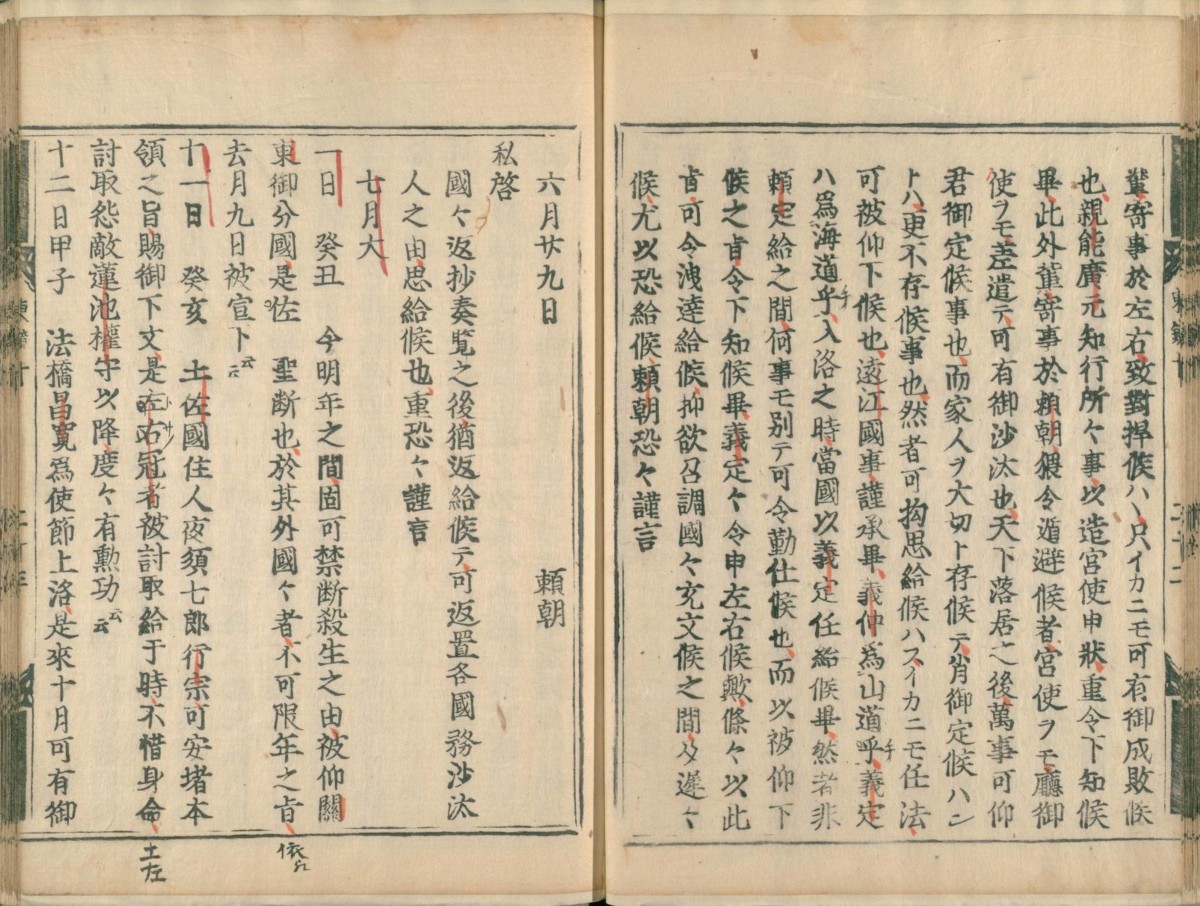 輩寄事於左右致對捍候ハヽ只イカニモ可有御成敗候
也親能廣元知行所々事以造宮使申狀重令下知候
畢此外輩寄事於賴朝猥令遁避候者宮使ヲモ廳御
使ヲモ差遣テ可有御沙汰也天下落居之後萬事可仰
君御定候事也而家人ヲ大切ト存候テ背御定候ハン
トハ更不存候事也然者可拘思給候ハスイカニモ任法
可被仰下候也遠江國事謹承畢義仲為山道手義定
ハ爲海道手入洛之時當國以義定任給候畢然者非
賴定給之間何事モ別テ可令勤仕候也而以被仰下
候之旨令下知候畢義定々令申左右候歟條々以此
旨可令洩達給候抑欲召調國々充文候之間及遲々
候尤以恐給候賴朝恐々謹言
六月廿九日　　　　　賴朝
私啓
國々返抄奏覽之後猶返給候テ可返置各國務沙汰
人之由思給候也重恐々謹言
七月大
一日　癸丑　今明年之間固可禁断殺生之由被仰關
東御分國是佐　聖断也於其外國々者不可限年之旨依
去月九日被宣下云云
十一日　癸亥　土佐國住人夜須七郎行宗可安堵本
領之旨賜御下文是左右冠者被討取給于時不惜身命
土左
討取怨敵蓮池權守以降度々有勲功云云
十二日甲子　法橋昌寛爲使節上洛是來十月可有御
東鑑十